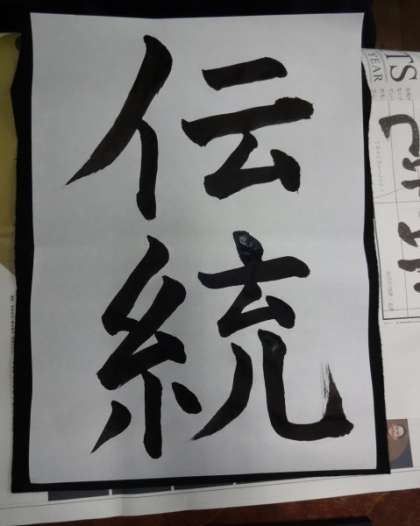 伝統
TS
YEAR